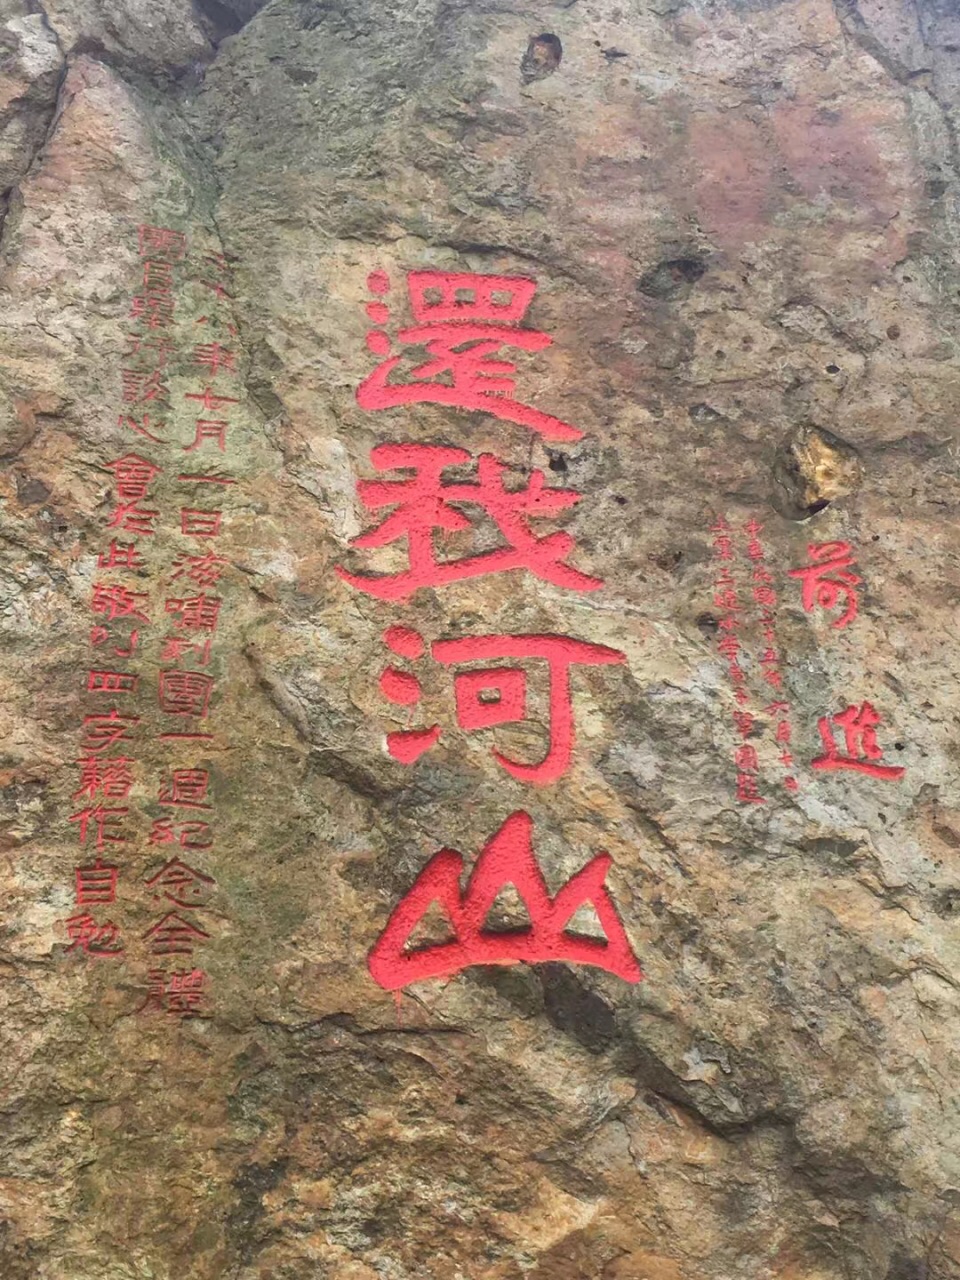 前進
中華民國
還我河山
八年七月一日海嘯劇團一週紀念全體
團員舉行談心會於此敬以四字藉作自勉